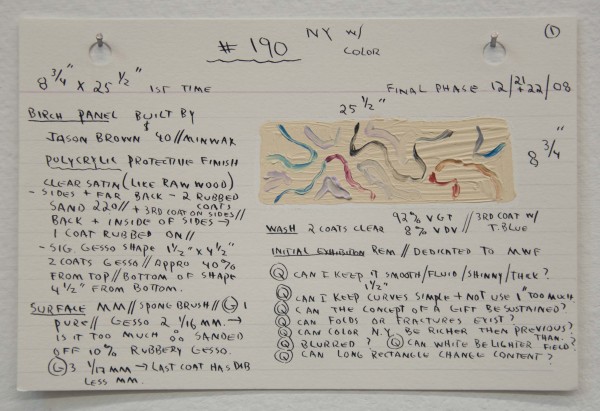 # 190 NY W/ COLOR ①
8 3/4" X 25 1/2" 1ST TIME
FINAL PHASE 12/21+22/08
BIRCH PANEL BUILT BY
JASON BROWN $40 // MINWAX
POLYCRYLIC PROTECTIVE FINISH
CLEAR SATIN (LIKE RAW WOOD)
- SIDES + FAR BACK - 2 RUBBED COATS
SAND 220 // + 3RD COAT ON SIDES //
BACK + INSIDE OF SIDES →
1 COAT RUBBED ON //
- SIG GESSO SHAPE 1 1/2" X 4 1/2"
2 COATS GESSO // APPRO 40%
FROM TOP // BOTTOM OF SHAPE
4 1/2" FROM BOTTOM.
SURFACE MM // SPONGE BRUSH // G 1
PURE // GESSO 2 1/16 MM. →
IS IT TOO MUCH SANDED
OFF 10% RUBBERY GESSO.
G 3 1/17 MM → LAST COAT HAS DAB
LESS MM.
25 1/2"
8 3/4"
WASH 2 COATS CLEAR 92% VGT 8% VDV // 3RD COAT W/ T. BLUE
INITIAL EXHIBITION REM // DEDICATED TO MWF
Q CAN I KEEP IT SMOOTH/FLUID/SHINNY/THICK?
1 1/2"
Q CAN I KEEP CURVES SIMPLE + NOT USE 1" TOO MUCH
Q CAN THE CONCEPT OF A GIFT BE SUSTAINED?
Q CAN FOLDS OR FRACTURES EXIST?
Q CAN COLOR N.Y. BE RICHER THEN PREVIOUS?
Q BLURRED? Q CAN WHITE BE LIGHTER THAN FIELD?
Q CAN LONG RECTANGLE CHANGE CONTENT?